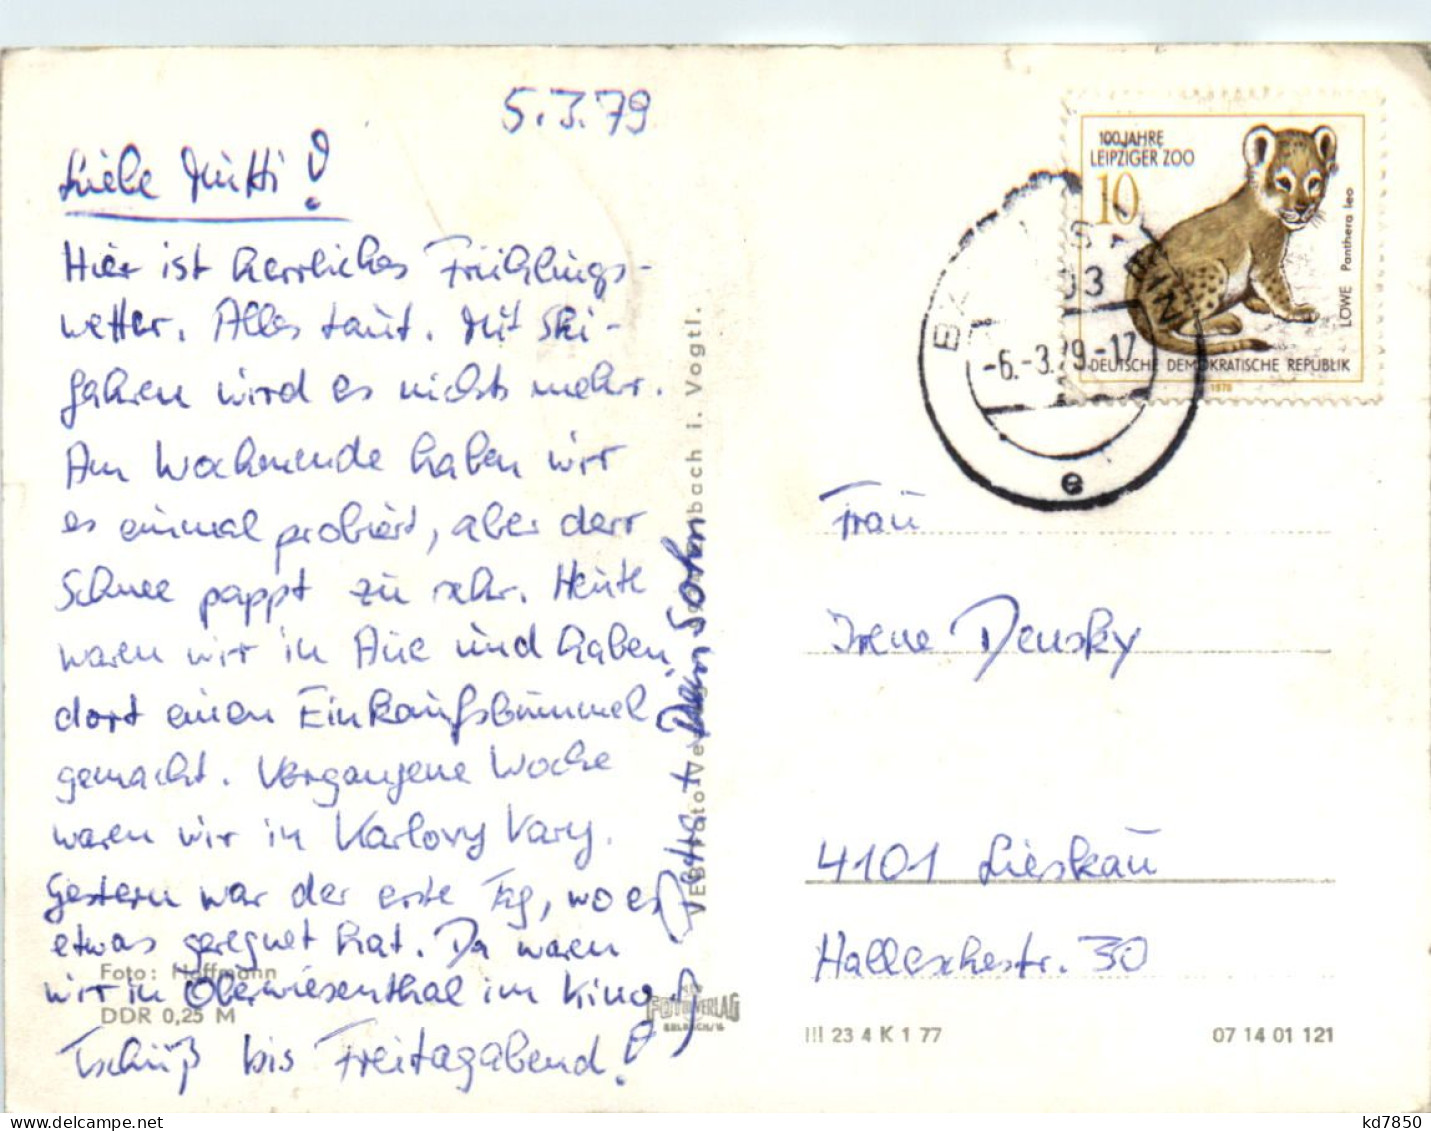 5.3.79
Liebe Mutti!
Hier ist herrliches Frühlings-
wetter. Alles taut. Mit Ski-
fahren wird es nichts mehr.
Am Wochenende haben wir
es einmal probiert, aber derr
Schnee pappt zu sehr. Heute
waren wir in Aue und haben
dort einen Einkaufsbummel
gemacht. Vergangene Woche
waren wir in Karlovy Vary.
Gestern war der erste Tag, wo es
etwas geregnet hat. Da waren
wir in Oberwiesenthal im Kino.
Tschüß bis Freitagabend!
Dein Sohn
Foto: Hoffmann
DDR 0,25 M
VEB Foto-Verlag bach i. Vogtl.
FOTO VERLAG
100 JAHRE
LEIPZIGER ZOO
10
LÖWE Panthera leo
DEUTSCHE DEMOKRATISCHE REPUBLIK
1978
-6.-3.79.-17
e
Frau
Irene Densky
4101 Lieskau
Halleschestr. 30
III 23 4 K 1 77
07 14 01 121
delcampe.net
kd7850